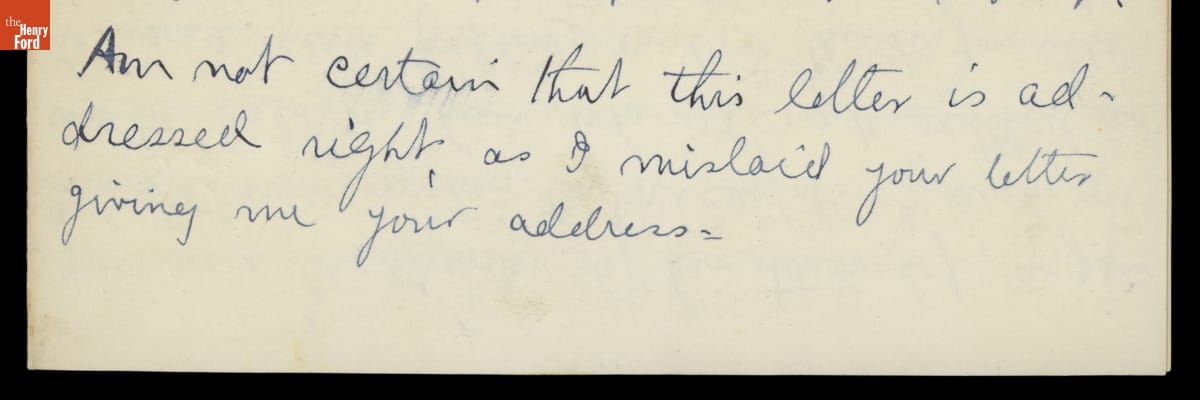 the
Henry
Ford
Am not certain that this letter is ad-
dressed right, as I mislaid your letter
giving me your address=